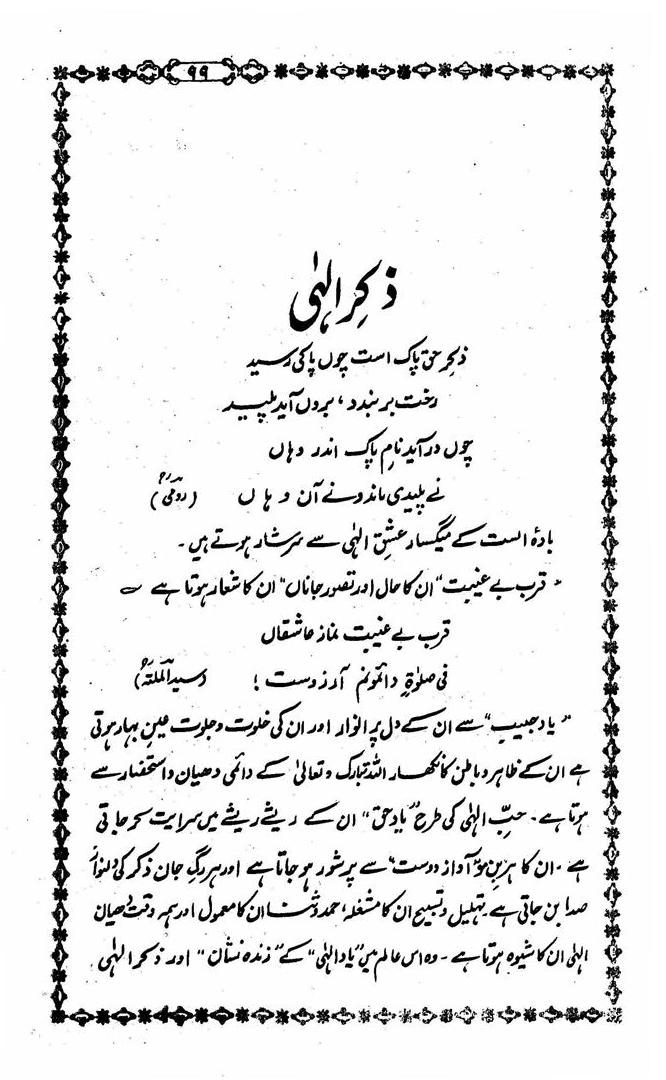 ۹۹
ذکرِ الٰہی
ذکرِ حق پاک است چوں پاکی رسید
رخت بر بندد، بروں آید پلید
چوں در آید نامِ پاک اندر دہاں
نے پلیدی ماند و نے آن دہاں (رومیؒ)
بادۂ الست کے میگسار عشقِ الٰہی سے سرشار ہوتے ہیں۔
"قرب بے غیبت" ان کا حال اور تصور جاناں" ان کا شعار ہوتا ہے ؎
قرب بے غیبت نماز عاشقاں
فی صلوٰۃٍ دائمونم آرزوست! (سید الملتؒ)
"یاد حبیب" سے ان کے دل پر انوار اور ان کی خلوت و جلوت عین بہار ہوتی
ہے ان کے ظاہر و باطن کا نکھار اللہ تبارک و تعالیٰ کے دائمی دھیان و استحضار سے
ہوتا ہے۔ حبِّ الٰہی کی طرح "یاد حق" ان کے ریشے ریشے میں سرایت کر جاتی
ہے۔ ان کا ہر بنِ مو "آواز دوست" سے پرشور ہو جاتا ہے اور ہر رگِ جان ذکر کی دلنواز
صدا بن جاتی ہے۔ تہلیل و تسبیح ان کا مشغلہ، حمد و ثنا ان کا معمول اور ہمہ وقت دھیان
الٰہی ان کا شیوہ ہوتا ہے۔ وہ اس عالم میں "یاد الٰہی" کے "زندہ نشان" اور ذکر الٰہی